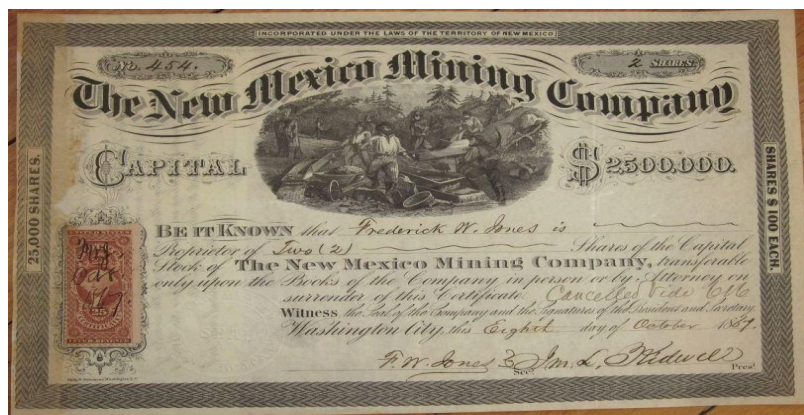 INCORPORATED UNDER THE LAWS OF THE TERRITORY OF NEW MEXICO
No. 454.
2 SHARES.
The New Mexico Mining Company
CAPITAL
$2500,000.
25,000 SHARES.
SHARES $100 EACH.
BE IT KNOWN that Frederick W. Jones is
Proprietor of Two (2) Shares of the Capital
Stock of The New Mexico Mining Company, transferable
only upon the Books of the Company in person or by Attorney on
surrender of this Certificate. Cancelled Vide
Witness the Seal of the Company and the Signatures of the President and Secretary
Washington City, this Eighth day of October 1867.
F. W. Jones Jno. L. Kidwell
Sec. Prest
25
CERTIFICATE